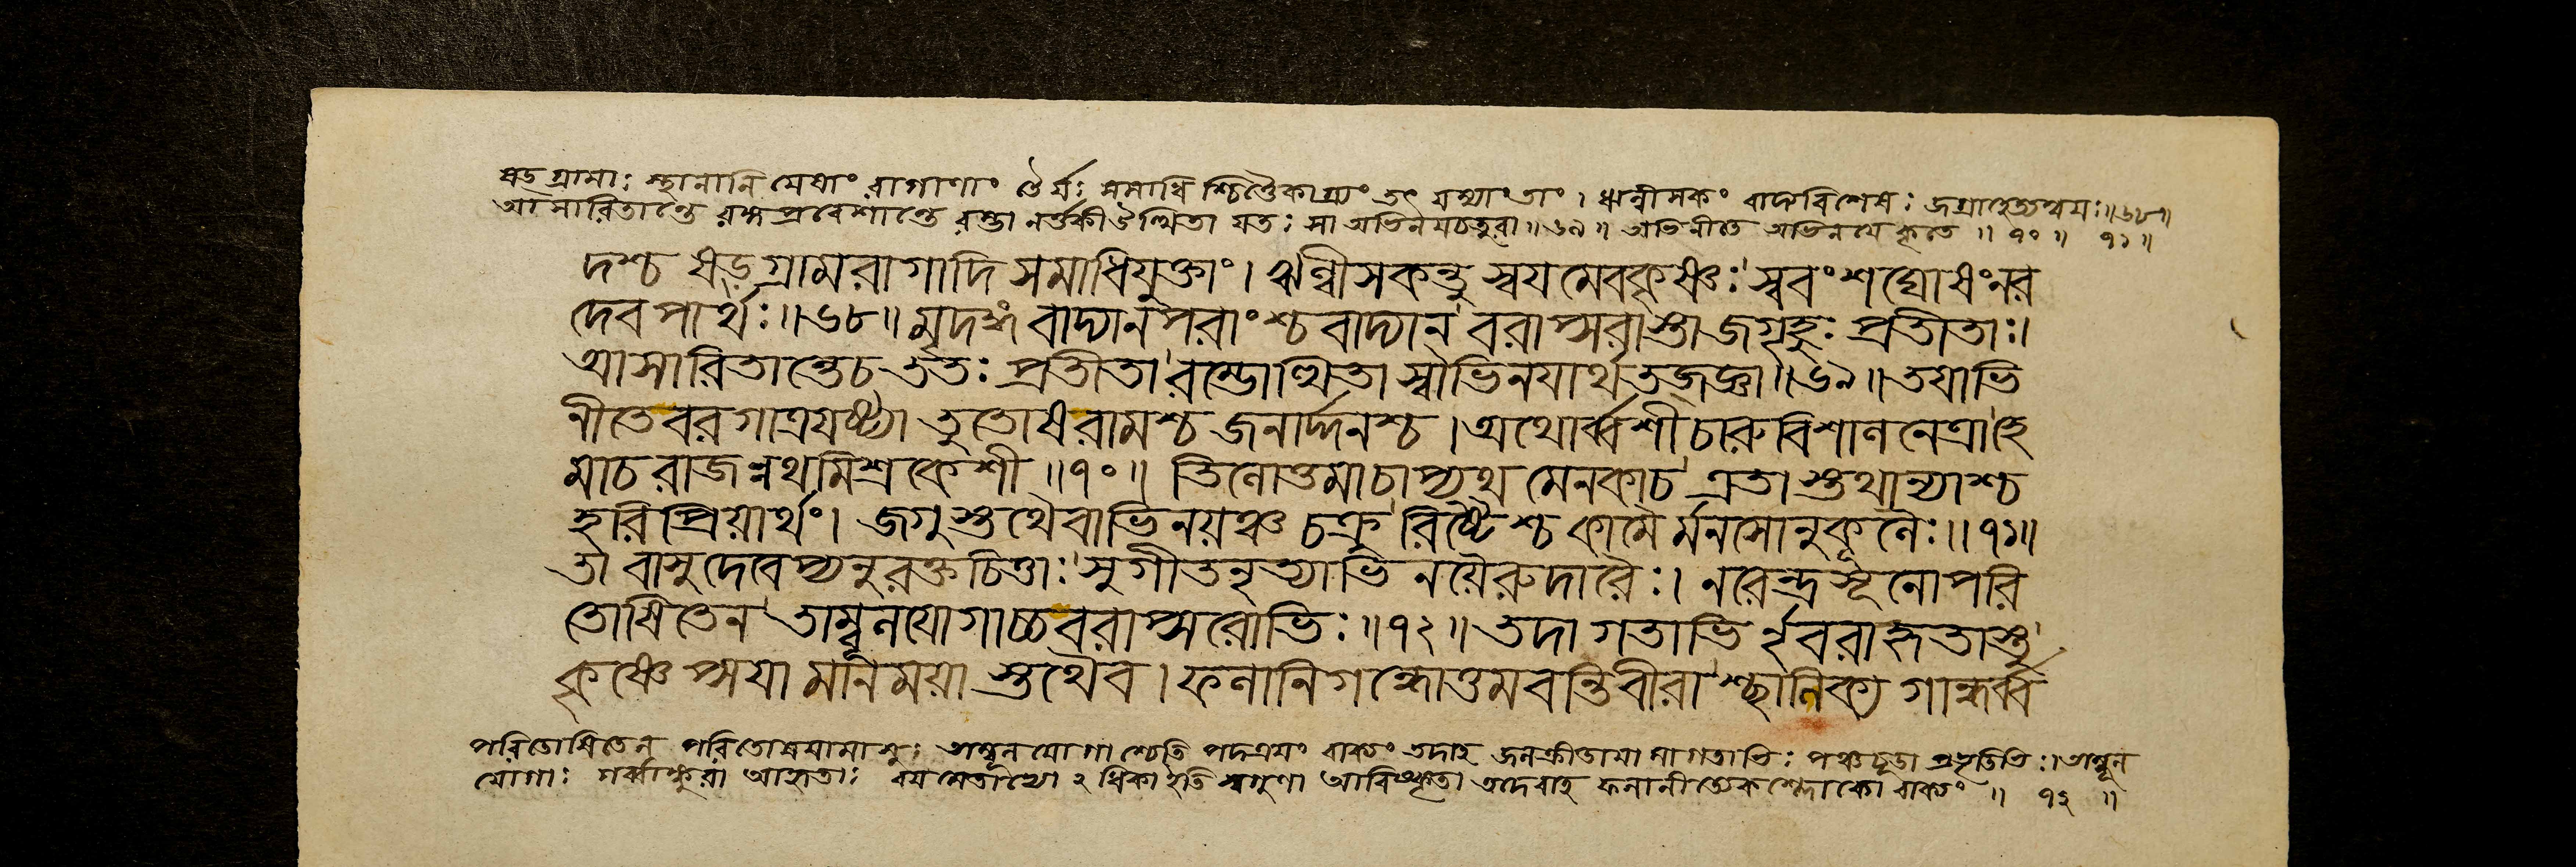 ষড়গ্রামাঃ স্থানানি যেষাং রাগাণাং তৈর্যঃ সমাধিশ্চিত্তৈকাগ্র্যং তৎ যস্যাং তাং । বাদ্যবিশেষঃ জগ্রাহেত্যন্বয়ঃ ॥ ৬৮ ॥
আসারিতান্তে রঙ্গপ্রবেশান্তে রম্ভা নর্ত্তকী উত্থিতা যতঃ সা অভিনয়চতুরা ॥ ৬৯ ॥ অভিনীতে অভিনয়ে কৃতে ॥ ৭০ ॥ ৭১ ॥
দশ্চ ষড়গ্রামরাগাদি সমাধিযুক্তাং । ঋল্লীসকন্তু স্বয়মেবকৃষ্ণঃ স্ববংশঘোষংনর
দেব পার্থঃ ॥ ৬৮ ॥ মৃদঙ্গ বাদ্যানপরাংশ্চ বাদ্যান বরাপ্সরাস্তা জগৃহুঃ প্রতীতাঃ ।
আসারিতান্তেচ ততঃ প্রতীতা রম্ভোত্থিতা সাভিনয়ার্থতজজ্ঞা ॥ ৬৯ ॥ তয়াভি
নীতে বরগাত্রযষ্ট্যা তুতোষ রামশ্চ জনার্দ্দনশ্চ । অথোর্ব্বশী চারুবিশালনেত্রা হে
মাচ রাজন্নথমিশ্রকেশী ॥ ৭০ ॥ তিলোত্তমাচাপ্যথ মেনকাচ এতাস্তথান্যাশ্চ
হরি প্রিয়ার্থং । জগুস্তথৈবাভিনয়ঞ্চ চক্রু রিষ্টৈশ্চ কামৈ র্মনসোনুকূলৈঃ ॥ ৭১ ॥
তা বাসুদেবেপ্যনুরক্তচিত্তাঃ সুগীতনৃত্যাভিনয়ৈরুদারৈঃ । নরেন্দ্রসূনো পরি
তোষিতেন তাম্বূলযোগাচ্চ বরাপ্সরোভিঃ ॥ ৭২ ॥ তদাগতাভি র্নৃবরাহৃতাস্তু
কৃষ্ণেপ্সয়া মানময়াস্তথৈব । ফলানিগন্ধোত্তমবন্তিবীরা শ্ছালিক্য গান্ধর্ব্ব
পরিতোষিতেন পরিতোষয়ামাসুঃ তাম্বূলযোগাশ্চেতি পদত্রয়ং বাক্যং তদাহ জলক্রীডায়ামাগতাভিঃ পঞ্চচূডা প্রভৃতিভিঃ । তাম্বূল
যোগাঃ আহৃতাঃ আবিষ্কৃতা এতদেবাহ ফলানীত্যেকশ্লোকো বাক্যং ॥ ৭২ ॥